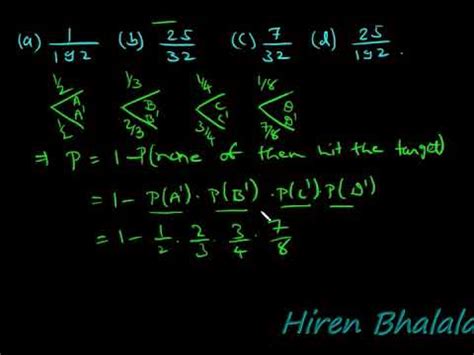 (a) 1/192 (b) 25/32 (c) 7/32 (d) 25/192.
1/2 1/3 1/4 1/8
A B C D
A' B' C' D'
1/2 2/3 3/4 7/8
⇒ P = 1 - P(none of them hit the target)
= 1 - P(A') · P(B') · P(C') · P(D')
= 1 - 1/2 · 2/3 · 3/4 · 7/8
Hiren Bhalala